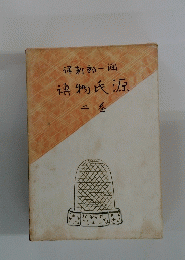 潤一郎新譯
源氏物語
卷二